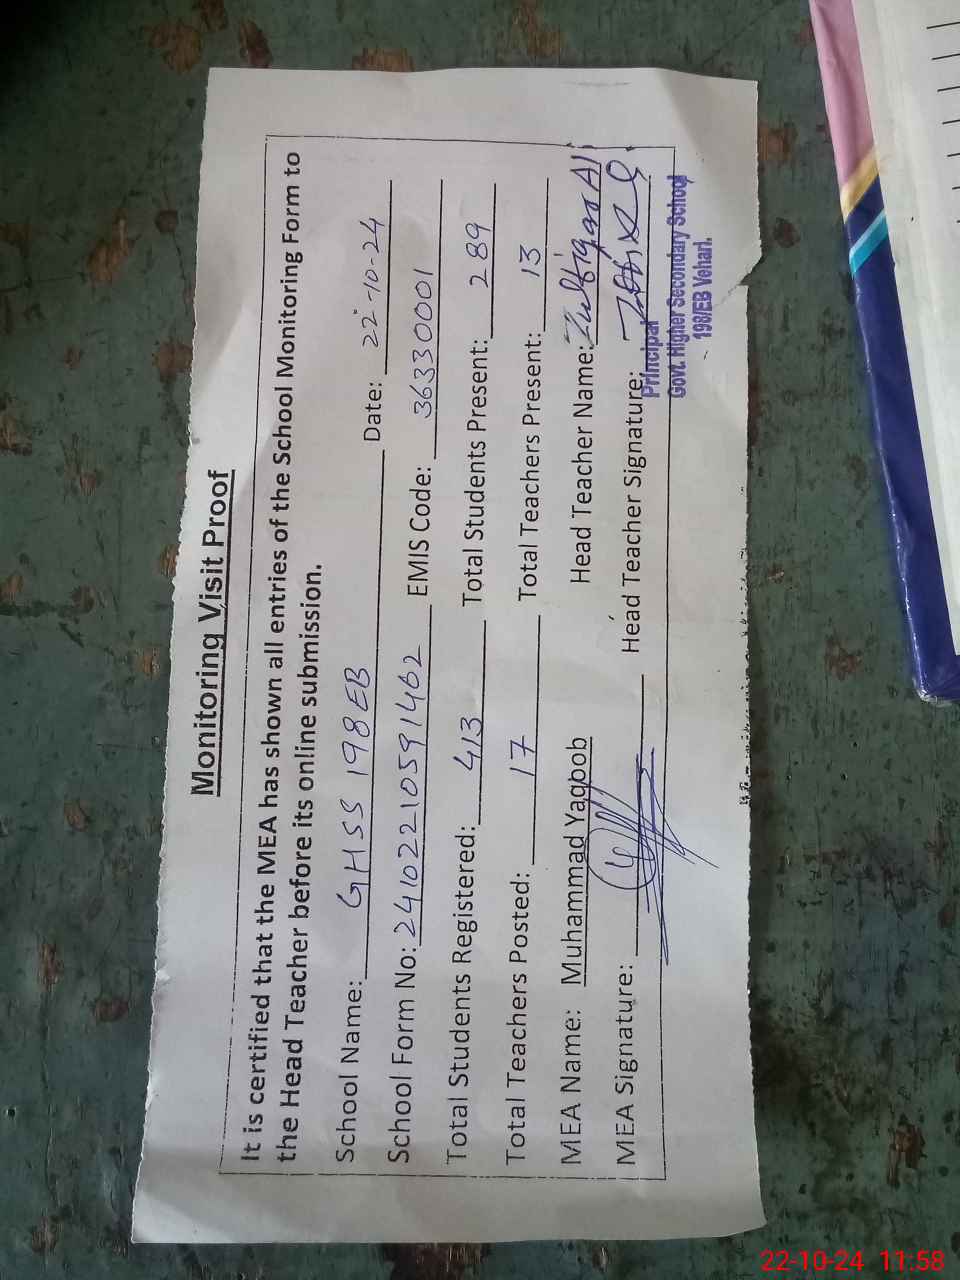 Monitoring Visit Proof
It is certified that the MEA has shown all entries of the School Monitoring Form to
the Head Teacher before its online submission.
School Name: GHSS 198EB Date: 22-10-24
School Form No: 24102210591462 EMIS Code: 36330001
Total Students Registered: 413 Total Students Present: 289
Total Teachers Posted: 17 Total Teachers Present: 13
MEA Name: Muhammad Yaqoob Head Teacher Name: Zulfiqar Ali
MEA Signature: Head Teacher Signature:
Principal
Govt. Higher Secondary School
198/EB Vehari.
22-10-24 11:58